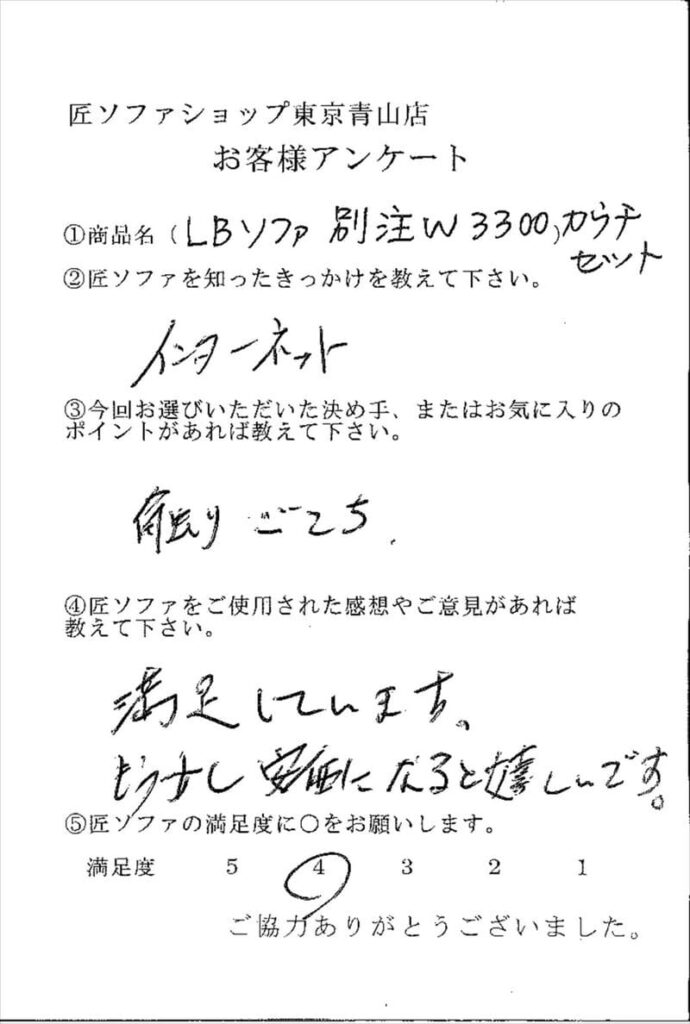 匠ソファショップ東京青山店
お客様アンケート
①商品名（LBソファ 別注W3300）カウチ
セット
②匠ソファを知ったきっかけを教えて下さい。
インターネット
③今回お選びいただいた決め手、またはお気に入りの
ポイントがあれば教えて下さい。
触りごこち.
④匠ソファをご使用された感想やご意見があれば
教えて下さい。
満足しています。
もう少し安価になると嬉しいです。
⑤匠ソファの満足度に○をお願いします。
満足度 5 4 3 2 1
ご協力ありがとうございました。